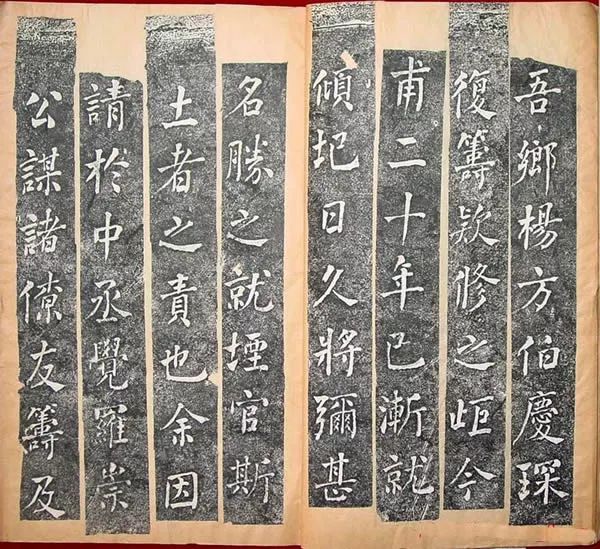 吾鄉楊方伯慶琛
復籌欵修之岠今
甫二十年已漸就
傾圮日久將彌甚
名勝之就堙官斯
土者之責也余因
請於中丞覺羅崇
公謀諸僚友籌及